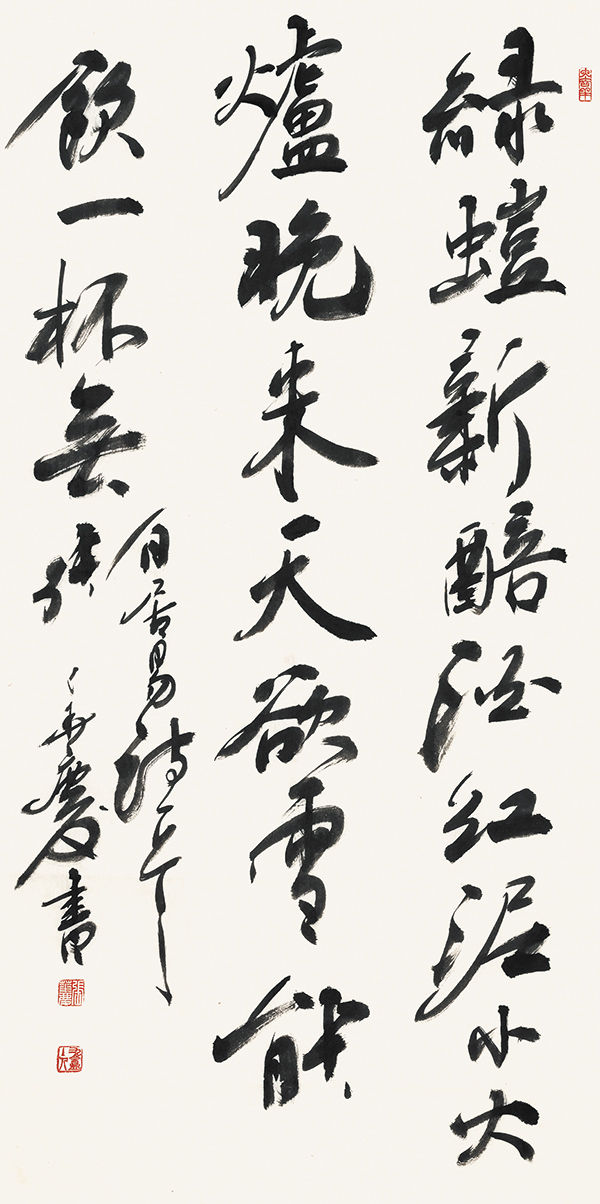 綠螘新醅酒紅泥小火
爐晚来天欲雪能
飲一杯無
白居易詩
慶書